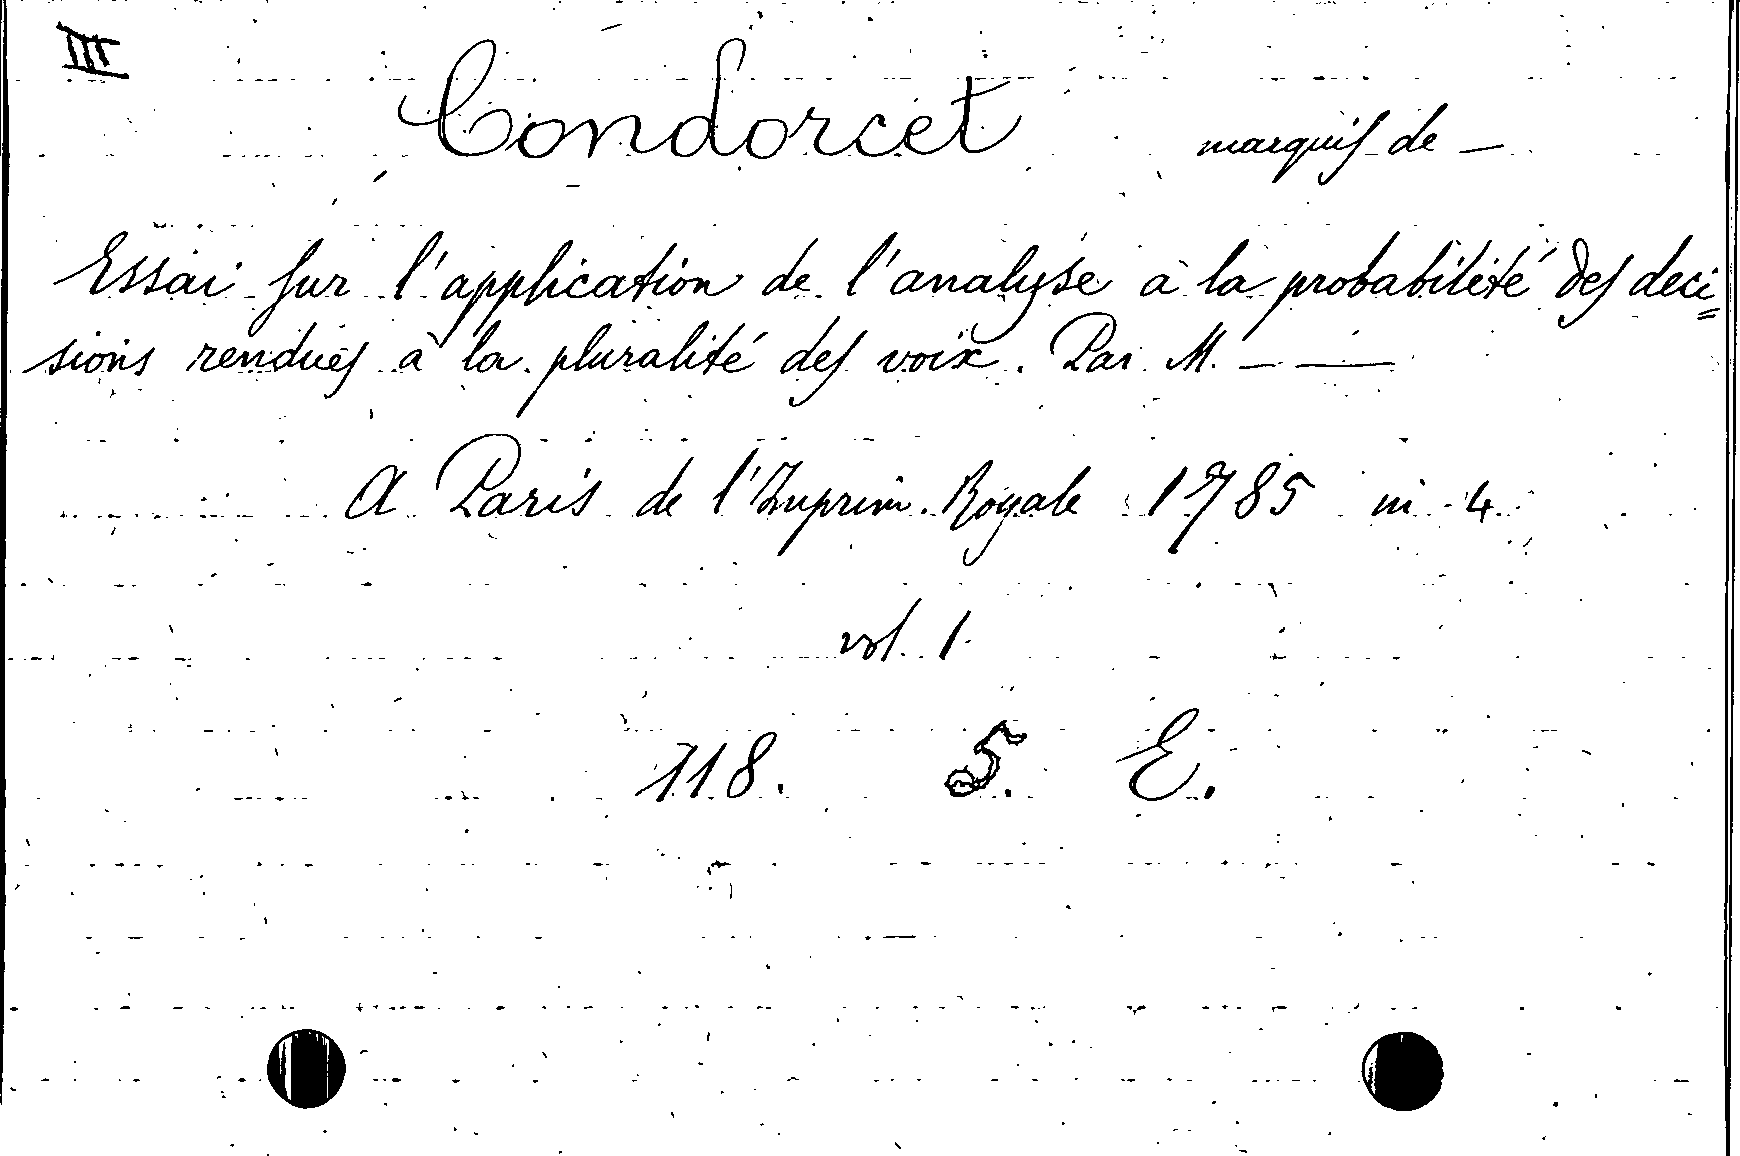 III
Condorcet marquis de —
Essai sur l'application de l'analyse à la probabilité des deci=
sions rendues à la pluralité des voix. Par M. — —
A Paris de l'Imprim. Royale 1785 in 4
vol. 1.
118. 5. E.